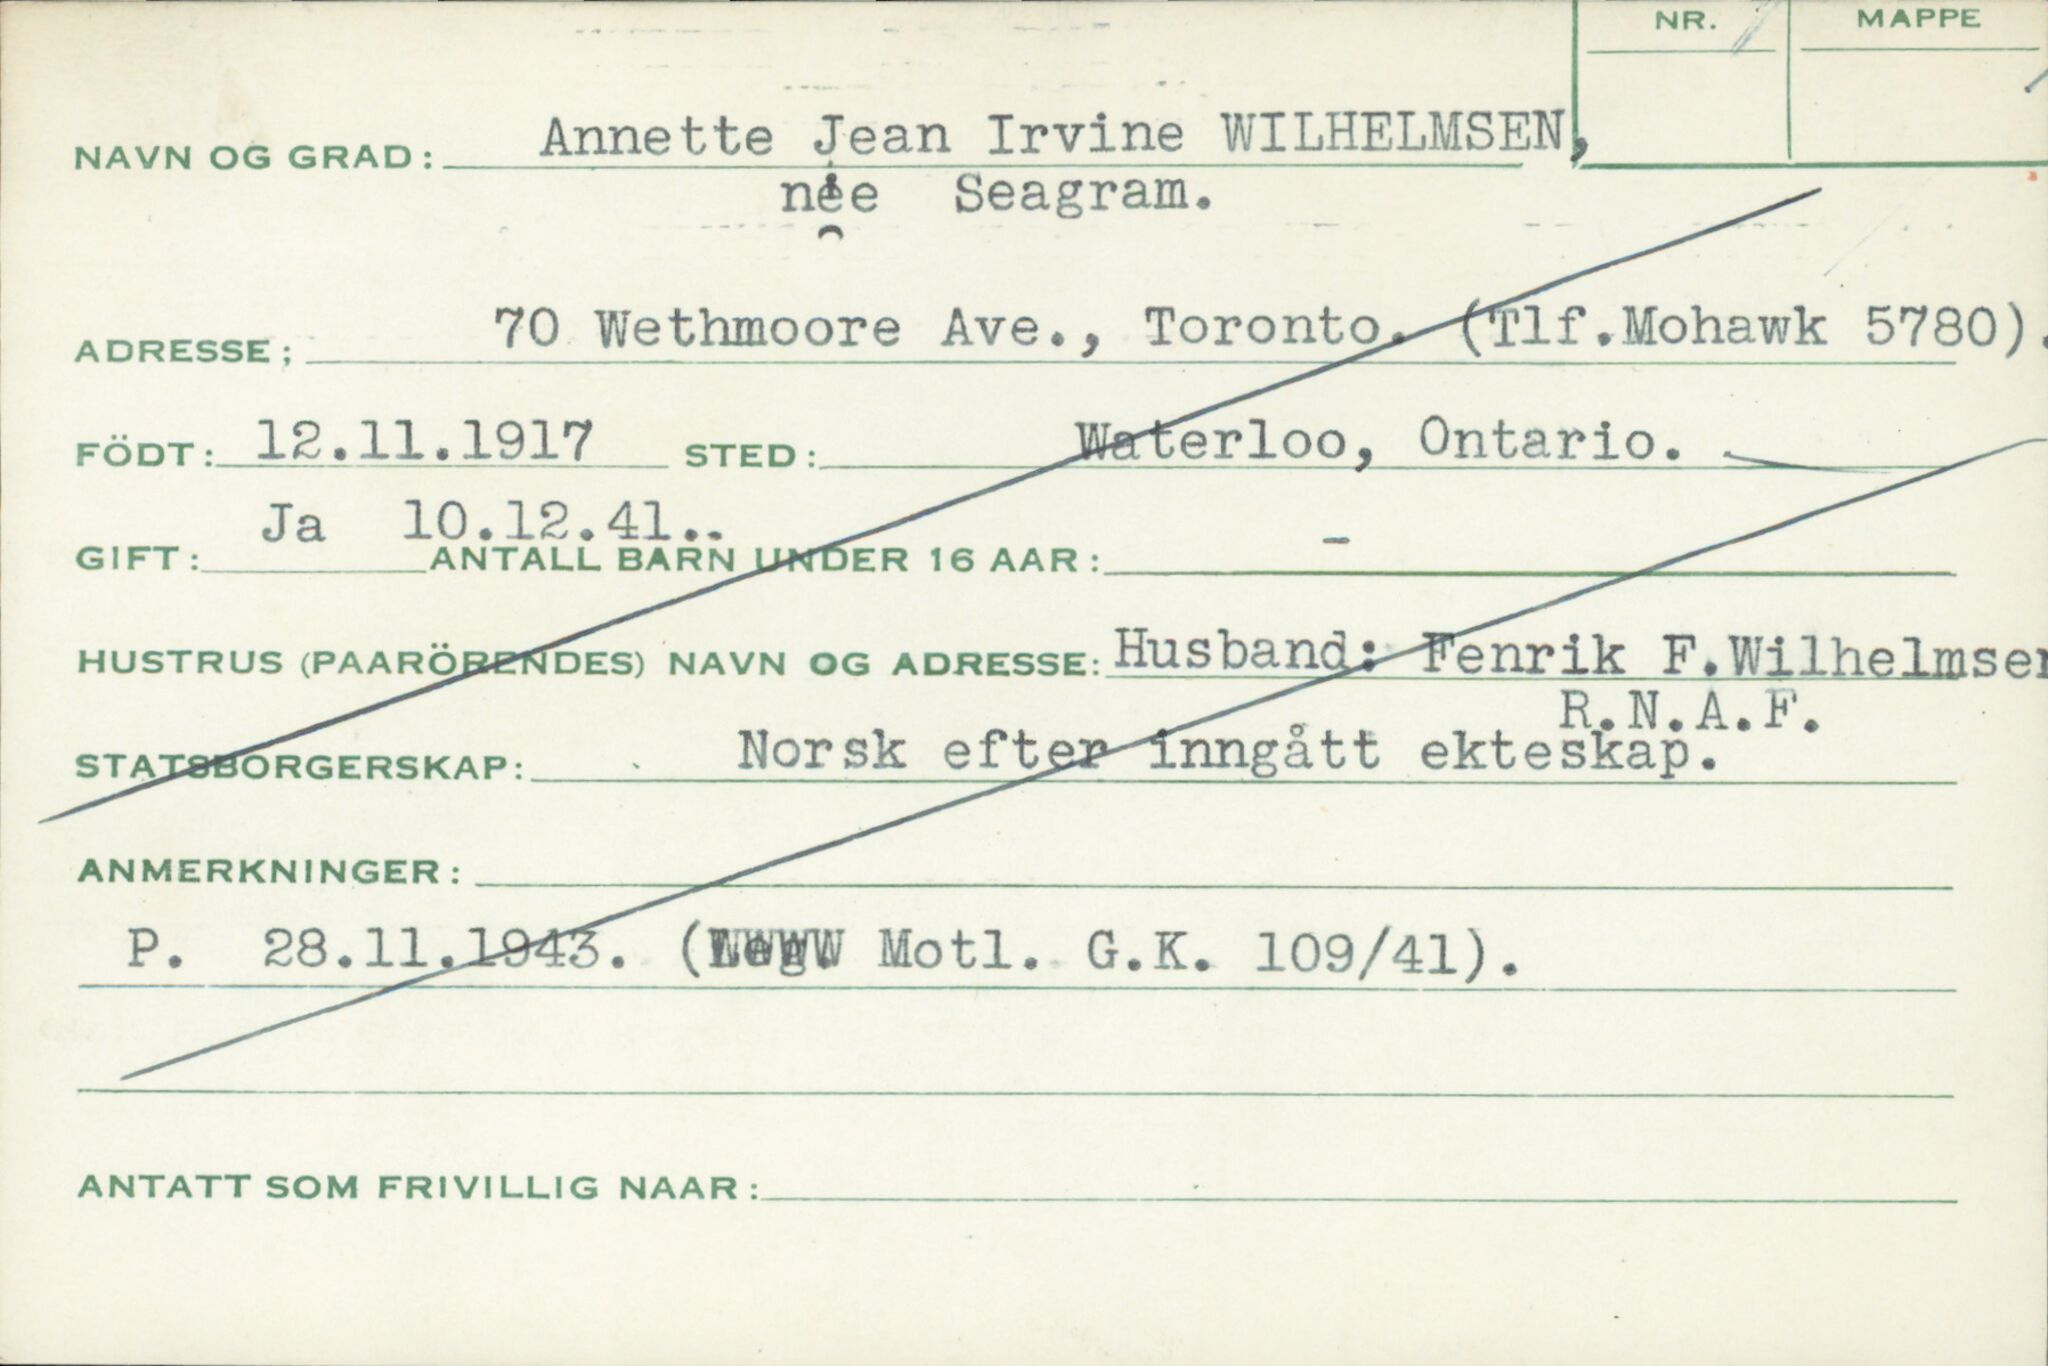 NR. MAPPE
NAVN OG GRAD: Annette Jean Irvine WILHELMSEN,
née Seagram.
ADRESSE; 70 Wethmoore Ave., Toronto. (Tlf.Mohawk 5780).
FÖDT: 12.11.1917 STED: Waterloo, Ontario.
GIFT: Ja 10.12.41.. ANTALL BARN UNDER 16 AAR: -
HUSTRUS (PAARÖRENDES) NAVN OG ADRESSE: Husband: Fenrik F.Wilhelmsen
R.N.A.F.
STATSBORGERSKAP: Norsk efter inngått ekteskap.
ANMERKNINGER:
P. 28.11.1943. ( Motl. G.K. 109/41).
ANTATT SOM FRIVILLIG NAAR: